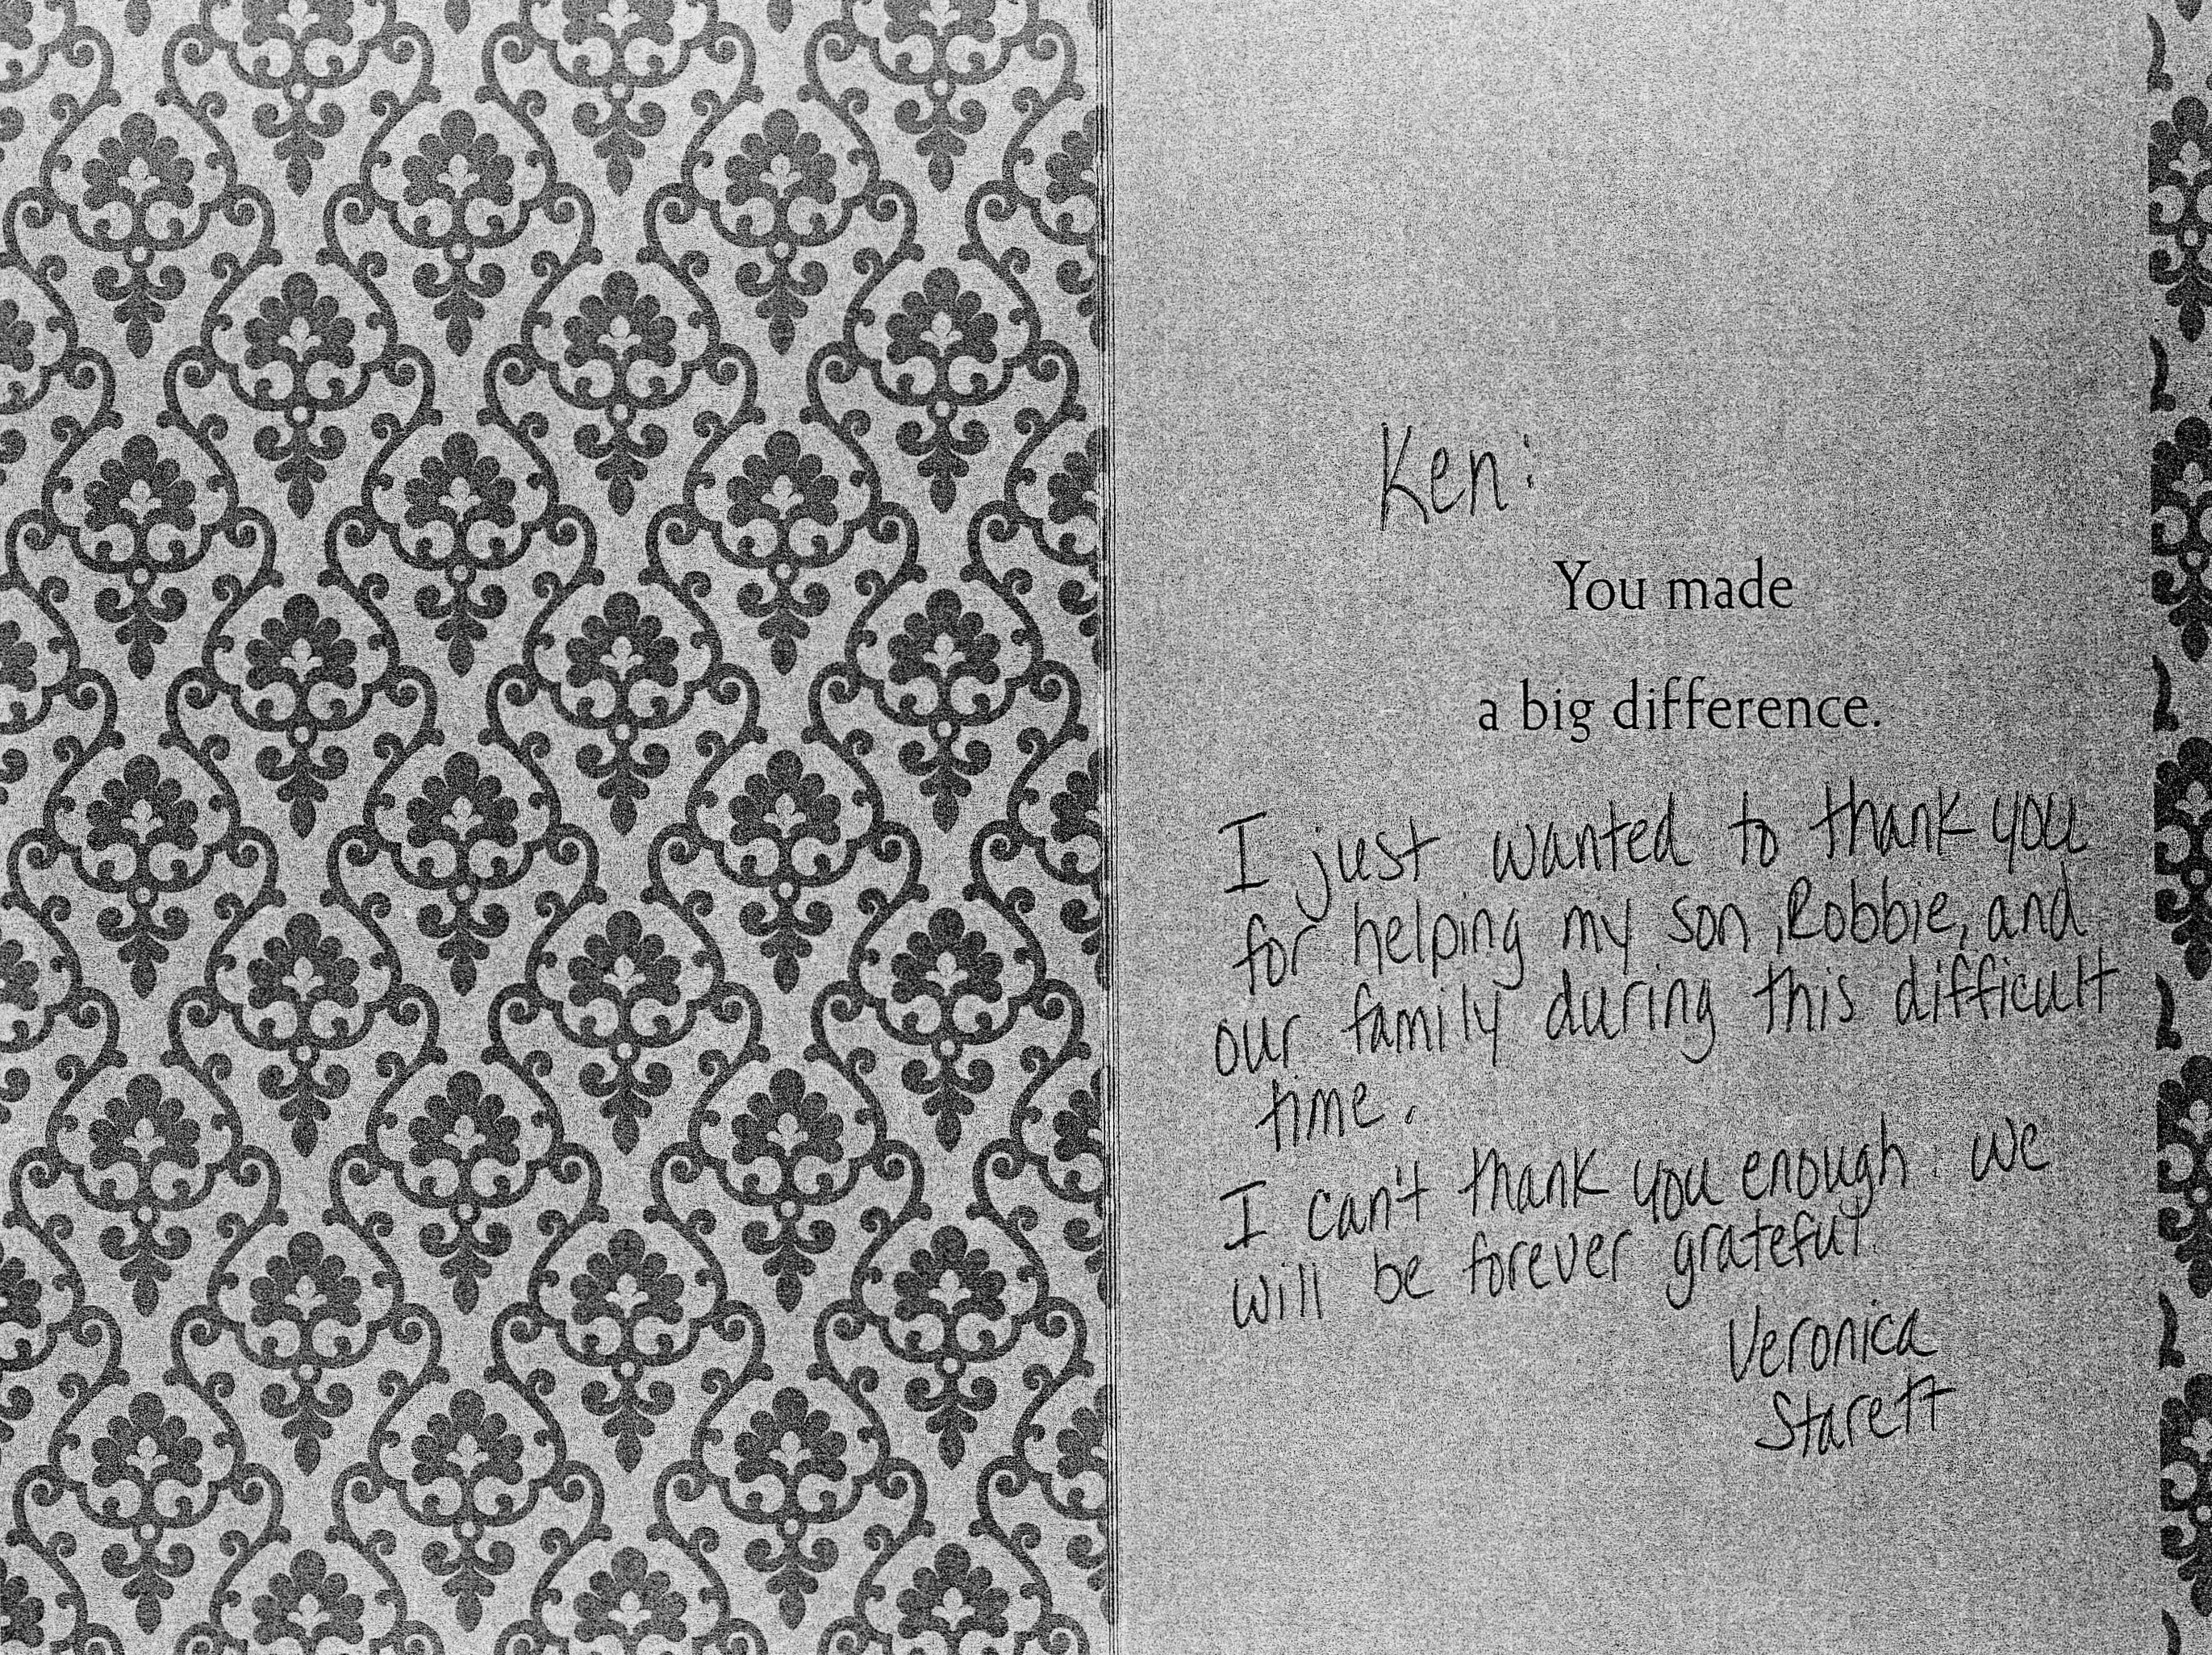 Ken:
You made
a big difference.
I just wanted to thank you
for helping my son, Robbie, and
our family during this difficult
time.
I can't thank you enough. We
will be forever grateful.
Veronica
Starett